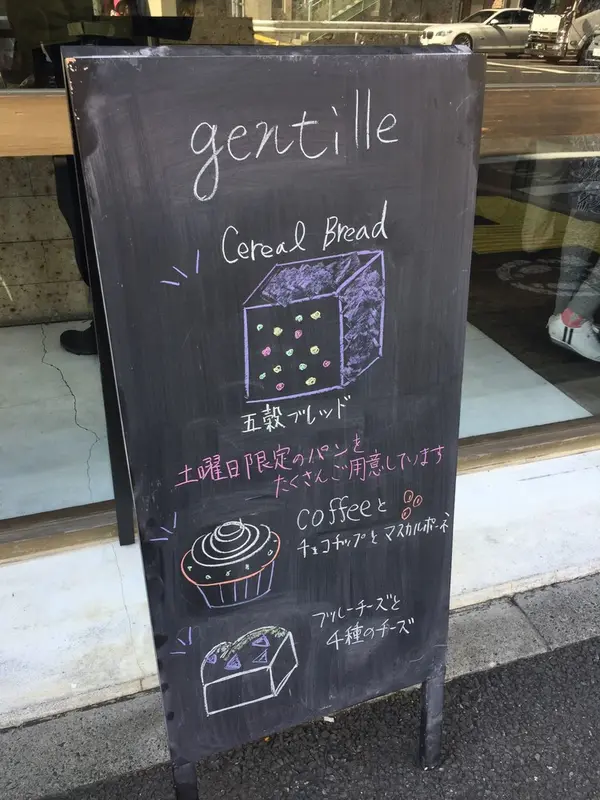 gentille
Cereal Bread
五穀ブレッド
土曜日限定のパンを
たくさんご用意しています
coffeeと
チョコチップとマスカルポーネ
ブルーチーズと
4種のチーズ